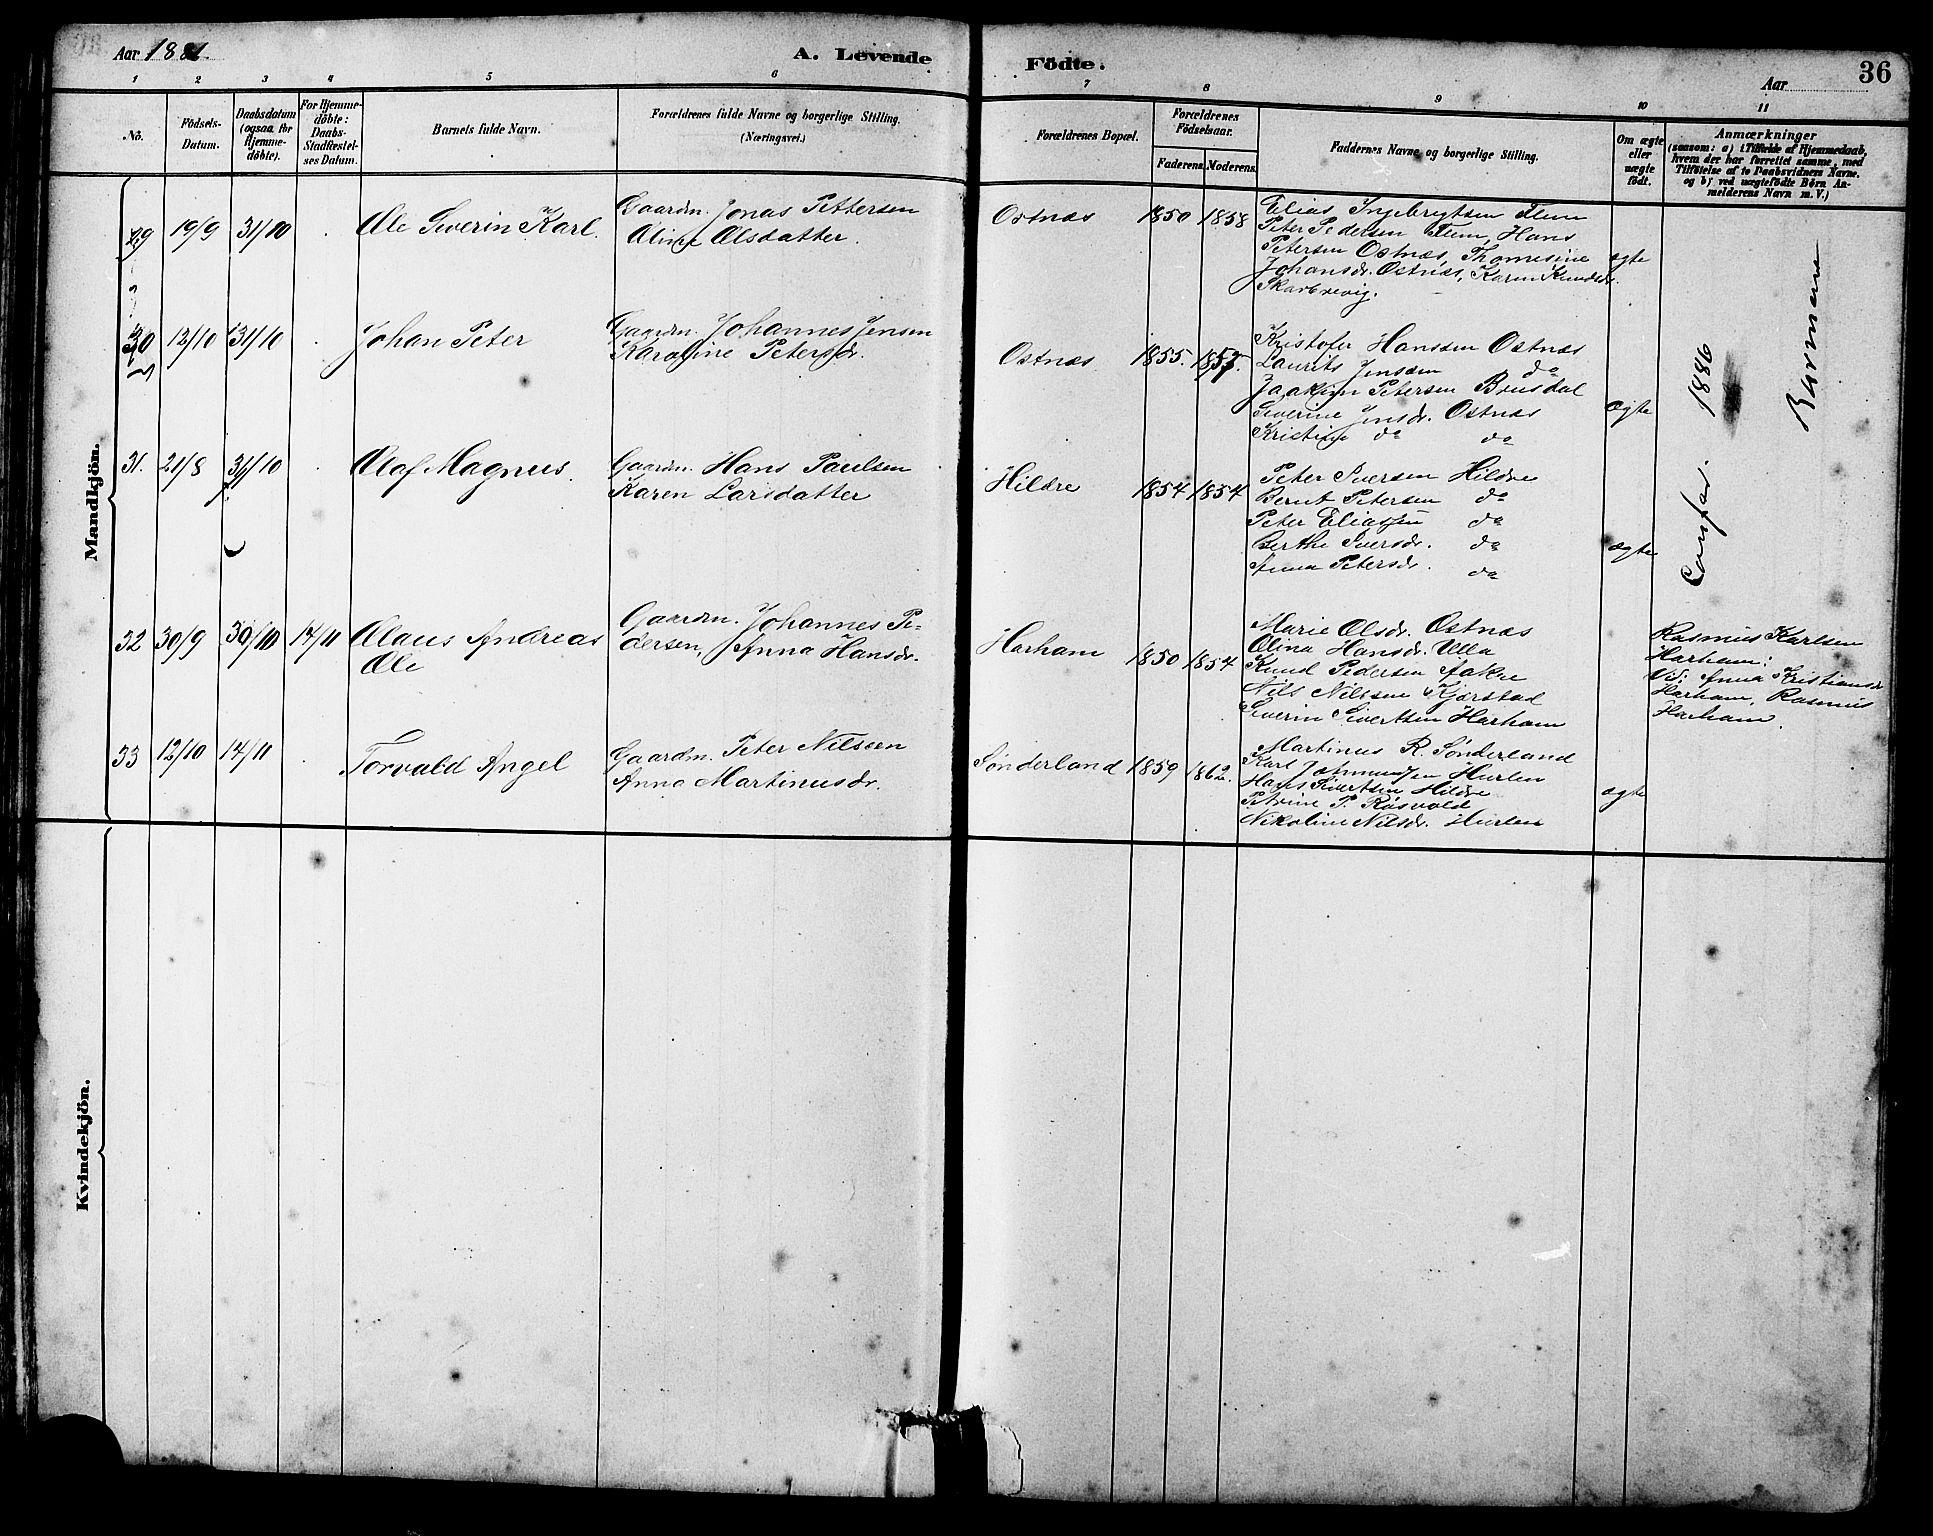 Aar 1881.
A. Levende Födte.
Aar
36
1 2 3 4 5 6 7 8 9 10 11
No.
Födsels-Datum.
Daabsdatum (ogsaa for Hjemme-döbte).
For Hjemme-döbte: Daabs-Stadfæstel-ses Datum.
Barnets fulde Navn.
Forældrenes fulde Navne og borgerlige Stilling.
(Næringsvei.)
Forældrenes Bopæl.
Forældrenes Födselsaar.
Faderens Moderens.
Faddernes Navne og borgerlige Stilling.
Om ægte eller uægte födt.
Anmærkninger
(saasom: a) i Tilfælde af Hjemmedaab,
hvem der har forrettet samme, med
Tilföielse af to Daabsvidners Navne.
og b) ved uægtefödte Börn An-
melderens Navn m. V.)
Mandkjön.
29 19/9 31/10 Ole Severin Karl.
Gaardm. Jonas Pettersen
Oline Olsdatter.
Ostnæs 1850 1858
Elias Ingebrigtsen Flem
Peter Pedersen Flem, Hans
Petersen Ostnæs, Thomesine
Johansdr. Ostnæs, Karen Knudsdr.
Skarbrevig.
ægte
30 12/10 31/10 Johan Peter
Gaardm. Johannes Jensen
Karoline Petersdr.
Ostnæs 1855. 1857.
Kristofer Hanssen Ostnæs
Laurits Jenssen do
Joakim Petersen Brusdal
Severine Jensdr. Ostnæs
Kristine do do
ægte
31. 21/8 31/10 Olaf Magnus.
Gaardm. Hans Paulsen
Karen Larsdatter
Hildre 1854 1854
Peter Iversen Hildre
Bernt Petersen do
Peter Eliassen do
Berthe Iversdr. do
Anna Petersdr. do
ægte
32 30/9 30/10 14/11 Olaus Andreas
Ole
Gaardm. Johannes Pe-
dersen, Anna Hansdr.
Harham 1850 1854
Marie Olsdr. Ostnæs
Olina Hansdr. Ulla
Knud Pedersen Aakre
Nils Nilssen Kjerstad
Severin Sivertsen Harham
Rasmus Karlsen
Harham;
Vid: Anna Kristiansdr
Harham, Rasmus
Harham.
33 12/10 14/11 Torvald Angel
Gaardm. Peter Nilssen
Anna Martinusdr.
Sönderland 1859 1862.
Martinus R. Sönderland
Karl Hurlen
Hans Sivertsen Hildre
Petrine P. Rösvold
Nikoline Nilsdr. Hurlen
ægte
1886
Kvindekjön.